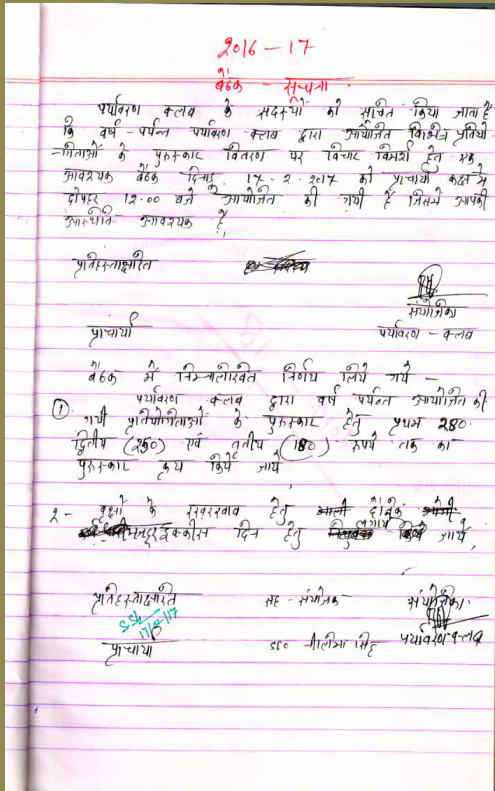 2016 - 17
बैठक - सूचना
पर्यावरण क्लब के सदस्यों को सूचित किया जाता है
कि वर्ष - पर्यन्त पर्यावरण क्लब द्वारा आयोजित विभिन्न प्रतियो
-गिताओं के पुरुस्कार वितरण पर विचार विमर्श हेतु एक
आवश्यक बैठक दिनांक 17 - 2 - 2017 को प्राचार्या कक्ष में
दोपहर 12.00 बजे आयोजित की गयी है जिसमे आपकी
उपस्थिति आवश्यक है,
प्रतिहस्ताक्षरित
संयोजिका
प्राचार्या
पर्यावरण - क्लब
बैठक में निम्नलिखित निर्णय लिये गये -
① पर्यावरण क्लब द्वारा वर्ष पर्यन्त आयोजित की
गयी प्रतियोगिताओं के पुरुस्कार हेतु प्रथम 280.
द्वितीय (250) एवं तृतीय (180) रूपये तक का
पुरुस्कार क्रय किये जाये
2 - वृक्षों के रखरखाव हेतु दैनिक
मजदूर इक्कीस दिन हेतु लगाये जाये,
प्रतिहस्ताक्षरित
सह - संयोजक
संयोजिका
17/02/17
प्राचार्या
डा० नीलिमा सिंह
पर्यावरण-क्लब